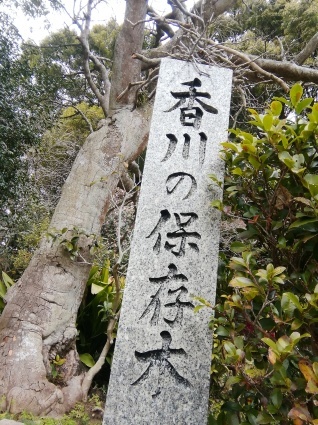 香川の保存木